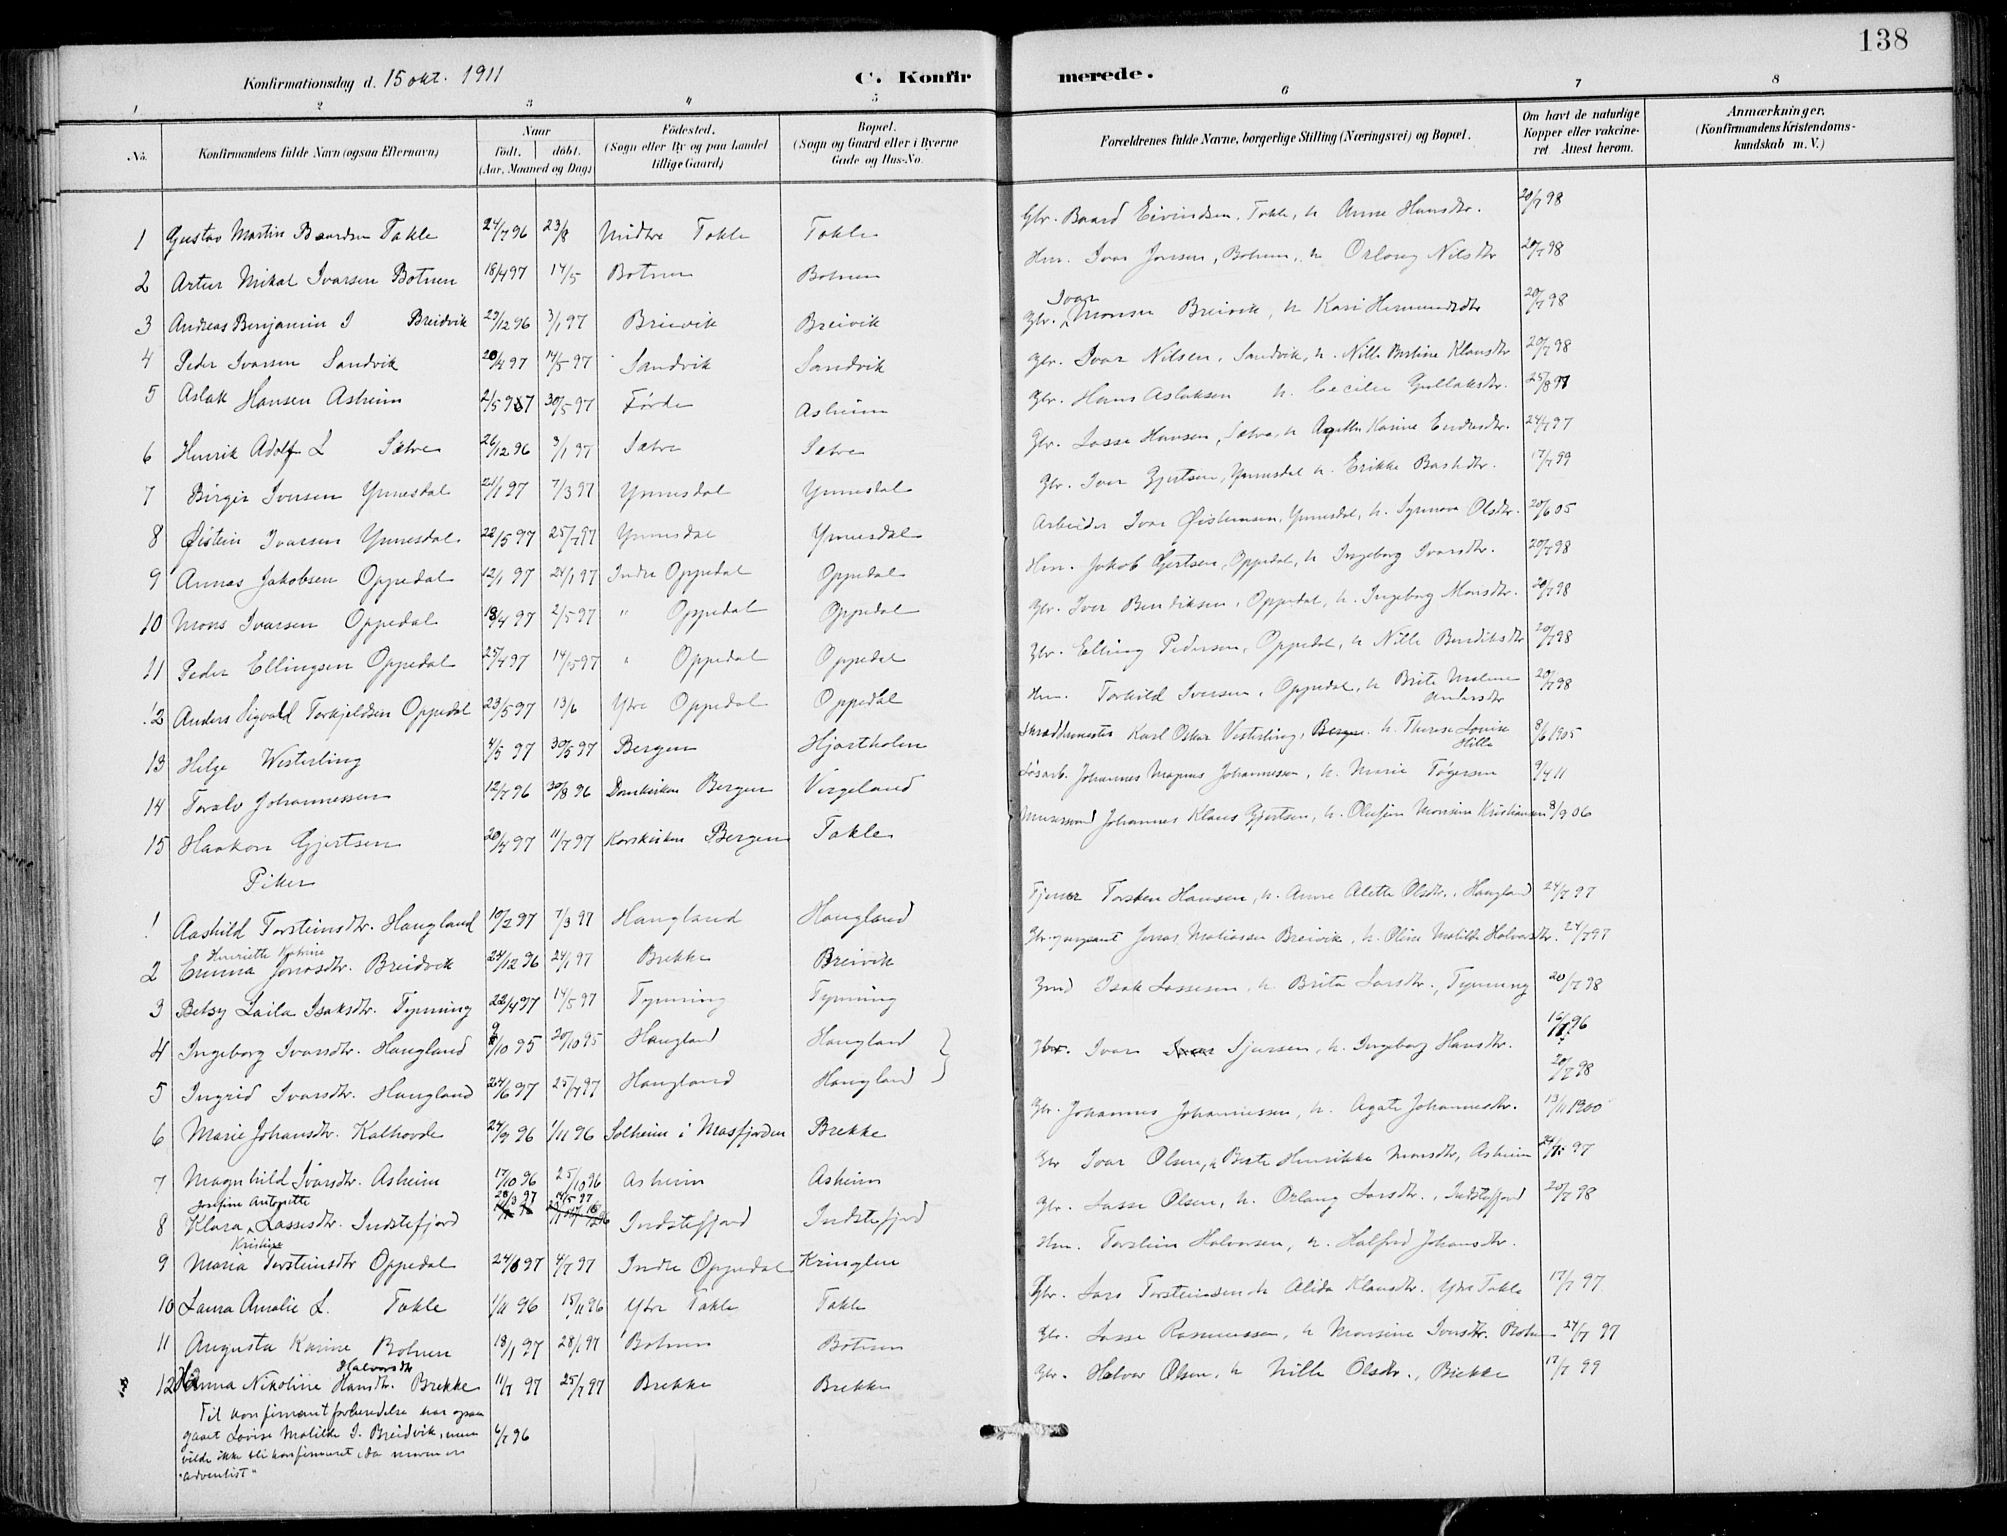 138
Konfirmationsdag d. 15 okt. 1911
C. Konfirmerede.
1 2 3 4 5 6 7 8
No.
Konfirmandens fulde Navn (ogsaa Efternavn)
Naar
födt. döbt.
(Aar, Maaned og Dag)
Födested.
(Sogn eller By og paa Landet tillige Gaard)
Bopæl.
(Sogn og Gaard eller i Byerne Gade og Hus-No.
Forældrenes fulde Navne, borgerlige Stilling (Næringsvei) og Bopæl.
Om havt de naturlige Kopper eller vakcineret Attest herom.
Anmærkninger,
(Konfirmandens Kristendomskundskab m. V.)
1 Gustav Martin Baardsen Takle 24/7 96 23/8 Midtre Takle Takle Gbr. Baard Eivindsen, Takle, h. Anne Hansdtr. 20/7 98
2 Artur Mikal Ivarsen Botnen 18/4 97 14/5 Botnen Botnen Hm. Ivar Jonsen, Botnen, h. Orlaug Nilsdtr 20/7 98
3 Andreas Benjamin I Breidvik 29/12 96 3/1 97 Breivik Breivik Gbr. Ivar Monsen Breivik, h. Kari Hermundsdtr 20/7 98
4 Peder Ivarsen Sandvik 20/4 97 14/5 97 Sandvik Sandvik Gbr. Ivar Nilsen, Sandvik, h. Nille Bertine Klausdtr 20/7 98
5 Aslak Hansen Asheim 2/5 97 30/5 97 Förde Asheim Gbr. Hans Aslaksen h. Cecilie Gullaksdtr. 25/8 97
6 Henrik Adolf L Sætre 26/12 96 3/1 97 Sætre Sætre Gbr. Lasse Hansen, Sætre, h. Agethe Karine Endresdtr. 24/7 97
7 Birger Iversen Ynnesdal 21/1 97 7/3 97 Ynnesdal Ynnesdal Gbr. Iver Gjertsen, Ynnesdal h. Erikke Baarddtr. 17/7 99
8 Øistein Ivarsen Ynnesdal 22/5 97 25/7 97 Ynnesdal Ynnesdal Arbeider Ivar Øistensen, Ynnesdal, h. Synneva Olsdtr. 20/6 05
9 Annas Jakobsen Oppedal 12/1 97 24/1 97 Indre Oppedal Oppedal Hm. Jakob Gjertsen, Oppedal, h. Ingeborg Ivarsdtr. 20/7 98
10 Mons Ivarsen Oppedal 18/4 97 2/5 97 " Oppedal Oppedal Gbr. Iver Bendiksen, Oppedal, h. Ingeborg Monsdtr. 20/7 98
11 Peder Ellingsen Oppedal 25/4 97 14/5 97 " Oppedal Oppedal Gbr. Elling Pedersen, Oppedal, h. Nille Bendiksdtr 20/7 98
12 Anders Sigvald Torkjeldsen Oppedal 23/5 97 13/6 Ytre Oppedal Oppedal Hm. Torkild Iversen, Oppedal, h. Brite Malene Andersdtr 20/7 98
13 Helge Westerling 4/5 97 30/5 97 Bergen Hjartholm Skræddermester Karl Oskar Vesterling, Bergen. h. Therese Lovise Hille 8/6 1905
14 Toralv Johannessen 12/7 96 30/8 96 Domkirken Bergen Virgeland Løsarb. Johannes Magnus Johannessen, h. Marie Tøgersen 9/4 11
15 Haakon Gjertsen 20/4 97 11/7 97 Korskirken Bergen Takle Murersvend Johannes Klaus Gjertsen, h. Monsine Kristiansen 8/9 06
Piker
1 Aashild Torsteinsdtr. Haugland 10/2 97 7/3 97 Haugland Haugland Tjener Torsten Hansen, h. Anne Alette Olsdtr. Haugland 24/7 97
2 Emma Henriette Katrine Jonasdtr. Breidvik 24/12 96 24/1 97 Brekke Breivik Jonas Matiassen Breivik, h. Oline Matilde Halvorsdtr. 24/7 97
3 Betsy Laila Isaksdtr. Tynning 22/4 97 14/5 97 Tynning Tynning Isak Lassesen, h. Brita Larsdtr., Tynning 20/7 98
4 Ingeborg Ivarsdtr. Haugland 9/10 95 20/10 95 Haugland Haugland Gbr. Ivar Sjursen, h. Ingeborg Hansdtr. 96
5 Ingrid Ivarsdtr. Haugland 24/6 97 25/7 97 Haugland Haugland 20/7 98
6 Marie Johansdtr. Kalhovde 24/9 96 1/11 96 Solheim i Masfjorden Brekke Gbr. Johannes Johannessen, h. Agate Johannesdtr. 13/11 1900
7 Magnhild Ivarsdtr. Asheim 17/10 96 25/10 96 Asheim Asheim Gbr Ivar Olsen, h Berte Henrikke Monsdtr, Asheim 97
8 Klara Josefine Antonette Lassesdtr. Indstefjord 28/3 97 14/5 97 Indstefjord Indstefjord Gbr. Lasse Olsen, h. Orlaug Larsdtr., Indstefjord 20/7 98
9 Maria Kristine Torsteinsdtr Oppedal 24/6 97 4/7 97 Indre Oppedal Kringlen Hm. Torstein Halvorsen, h. Halfred Johansdtr.
10 Laura Amalie L. Takle 1/11 96 15/11 96 Ytre Takle Takle Gbr. Lars Torsteinsen h Alida Klausdtr. Ytre Takle 17/7 97.
11 Augusta Karine Botnen 18/1 97 28/1 97 Botnen Botnen Gbr. Lasse Rasmussen, h Monsine Ivarsdtr. Botnen 24/7 97
12 Anna Nikoline Halvorsdtr Brekke 11/7 97 25/7 97 Brekke Brekke Gbr. Halvor Olsen, h Nille Olsdtr., Brekke 17/7 99
Til konfirmantforberedelse har ogsaa
gaaet Lovise Matilde I. Breidvik, men 6/7 96
vilde ikke bli konfirmeret, da moren er
"adventist"